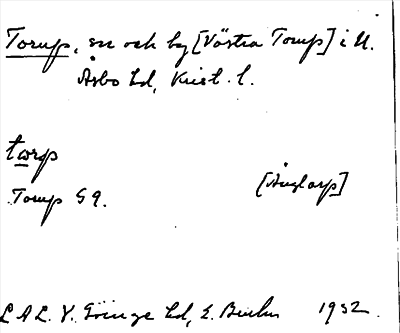 Torup, sn och by [Västra Torup] i N.
Åsbo hd, Krist. l.
torp
Torup S 9.
[Änglarp]
L A L. V. Göinge hd, E. 1932